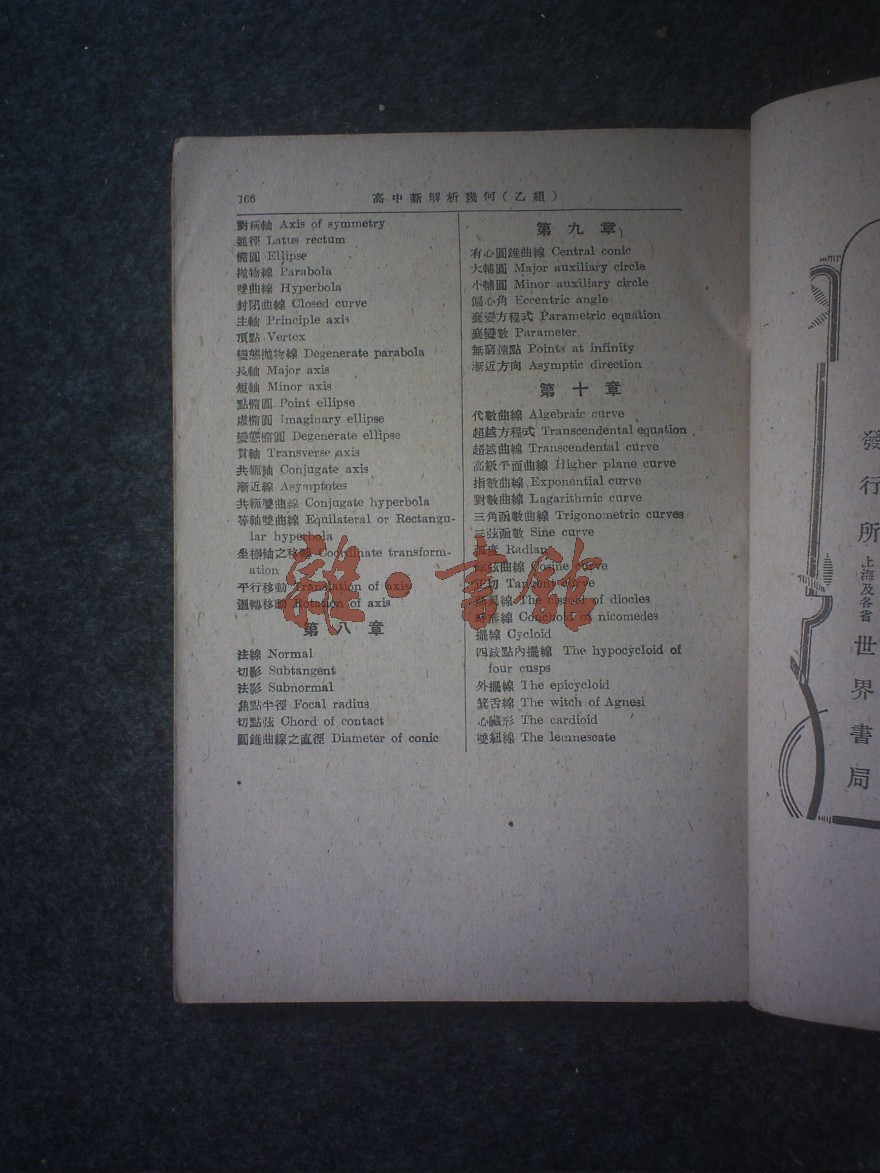 166
高中新解析幾何(乙組)
對稱軸 Axis of symmetry
通徑 Latus rectum
橢圓 Ellipse
拋物線 Parabola
雙曲線 Hyperbola
封閉曲線 Closed curve
主軸 Principle axis
頂點 Vertex
變態拋物線 Degenerate parabola
長軸 Major axis
短軸 Minor axis
點橢圓 Point ellipse
虛橢圓 Imaginary ellipse
變態橢圓 Degenerate ellipse
貫軸 Transverse axis
共軛軸 Conjugate axis
漸近線 Asymptotes
共軛雙曲線 Conjugate hyperbola
等軸雙曲線 Equilateral or Rectangu-
lar hyperbola
坐標軸之移動 Coordinate transform-
ation
平行移動 Translation of axis
迴轉移動 Rotation of axis
第八章
法線 Normal
切影 Subtangent
法影 Subnormal
焦點半徑 Focal radius
切點弦 Chord of contact
圓錐曲線之直徑 Diameter of conic
第九章
有心圓錐曲線 Central conic
大輔圓 Major auxiliary circle
小輔圓 Minor auxiliary circle
偏心角 Eccentric angle
襄變方程式 Parametric equation
襄變數 Parameter
無窮遠點 Points at infinity
漸近方向 Asymptic direction
第十章
代數曲線 Algebraic curve
超越方程式 Transcendental equation
超越曲線 Transcendental curve
高級平面曲線 Higher plane curve
指數曲線 Exponential curve
對數曲線 Lagarithmic curve
三角函數曲線 Trigonometric curves
三弦函數 Sine curve
Radian
餘弦曲線 Cosine curve
正切 Tangent curve
The cissoid of diocles
Conchoid of nicomedes
擺線 Cycloid
四歧點內擺線 The hypocycloid of
four cusps
外擺線 The epicycloid
箕舌線 The witch of Agnesi
心臟形 The cardioid
雙紐線 The lemnescate
雜·書館
發行所
上海及各省
世界書局